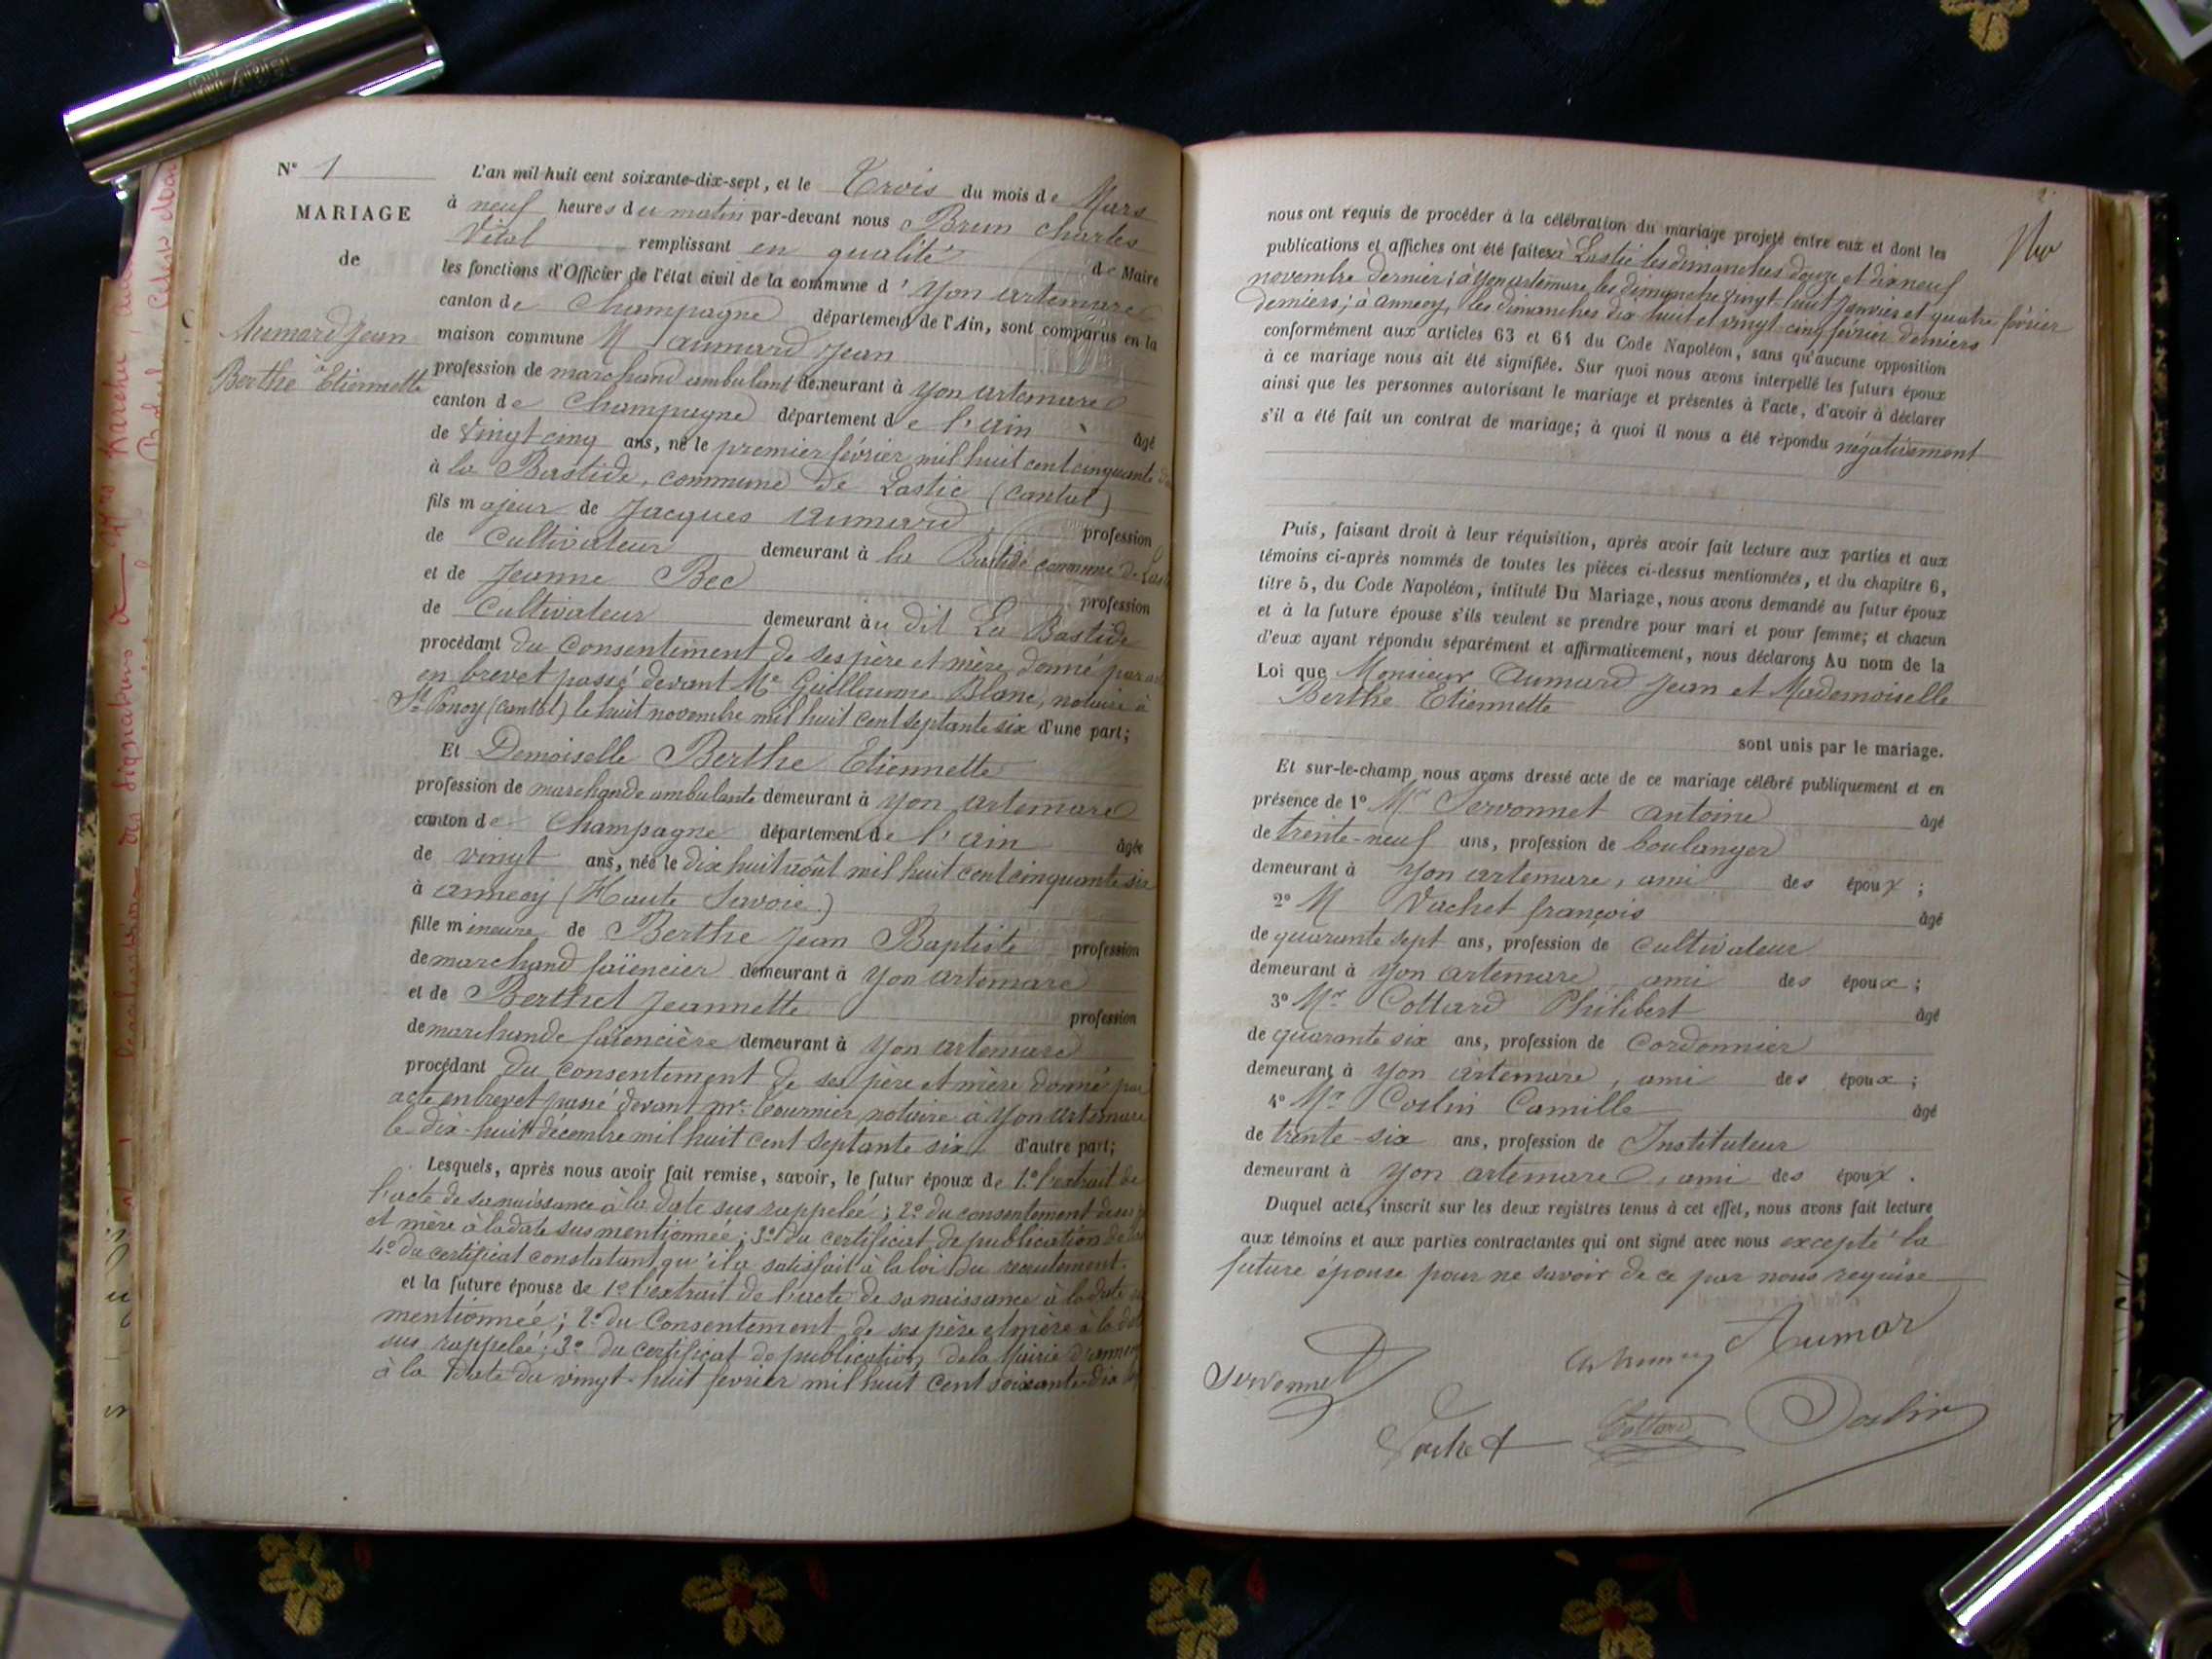 N° 1
MARIAGE
de
Aumard Jean
à
Berthe Etiennette
L'an mil huit cent soixante-dix-sept, et le Trois du mois de Mars
à neuf heures du matin par-devant nous Brun Charles
Vital remplissant en qualité de Maire
les fonctions d'Officier de l'état civil de la commune d'Yon artemare
canton de Champagne département de l'Ain, sont comparus en la
maison commune M aumard Jean
profession de marchand ambulant demeurant à Yon artemare
canton de Champagne département de l'ain âgé
de vingt cinq ans, né le premier février mil huit cent cinquante
à la Bastide, commune de Lastic (Cantal)
fils majeur de Jacques Aumard profession
de Cultivateur demeurant à la Bastide commune de
et de Jeanne Bec profession
de Cultivateur demeurant au dit La Bastide
procédant du consentement de ses père et mère donné par
en brevet passé devant Me Guillaume Blanc, notaire à
St Poncy (Cantal) le huit novembre mil huit cent septante six d'une part;
Et Demoiselle Berthe Etiennette
profession de marchande ambulante demeurant à Yon artemare
canton de Champagne département de l'ain âgée
de vingt ans, née le dix huit août mil huit cent cinquante six
à annecy (Haute Savoie)
fille mineure de Berthe Jean Baptiste profession
de marchand faïencier demeurant à Yon artemare
et de Berthet Jeannette profession
de marchande faïencière demeurant à Yon artemare
procédant du consentement de ses père et mère donné par
acte en brevet passé devant me. notaire à Yon artemare
le dix-huit décembre mil huit cent septante six d'autre part;
Lesquels, après nous avoir fait remise, savoir, le futur époux de 1° l'extrait de
l'acte de sa naissance à la date sus rappelée; 2° du consentement
et mère à la date sus mentionnée; 3° du certificat de publication de
4° du certificat constatant qu'il a satisfait à la loi du recrutement.
et la future épouse de 1° l'extrait de l'acte de sa naissance à la date
mentionnée; 2° du Consentement de ses père et mère à la
sus rappelée; 3° du certificat de publication de la Mairie d'annecy
à la date du vingt-huit février mil huit cent soixante-dix
nous ont requis de procéder à la célébration du mariage projeté entre eux et dont les
publications et affiches ont été faites à Lastic les dimanches douze et dix neuf
novembre dernier; à Yon artemare les dimanche vingt-huit Janvier et quatre février
derniers; à annecy, les dimanches dix huit et vingt cinq février derniers
conformément aux articles 63 et 64 du Code Napoléon, sans qu'aucune opposition
à ce mariage nous ait été signifiée. Sur quoi nous avons interpellé les futurs époux
ainsi que les personnes autorisant le mariage et présentes à l'acte, d'avoir à déclarer
s'il a été fait un contrat de mariage; à quoi il nous a été répondu négativement
Puis, faisant droit à leur réquisition, après avoir fait lecture aux parties et aux
témoins ci-après nommés de toutes les pièces ci-dessus mentionnées, et du chapitre 6,
titre 5, du Code Napoléon, intitulé Du Mariage, nous avons demandé au futur époux
et à la future épouse s'ils veulent se prendre pour mari et pour femme; et chacun
d'eux ayant répondu séparément et affirmativement, nous déclarons Au nom de la
Loi que Monsieur Aumard Jean et Mademoiselle
Berthe Etiennette
sont unis par le mariage.
Et sur-le-champ nous avons dressé acte de ce mariage célébré publiquement et en
présence de 1° Mr Servonnet Antoine âgé
de trente-neuf ans, profession de boulanger
demeurant à Yon artemare, ami des époux;
2° M Vachet françois âgé
de quarante sept ans, profession de Cultivateur
demeurant à Yon artemare, ami des époux;
3° Mr Collard Philibert âgé
de quarante six ans, profession de Cordonnier
demeurant à Yon artemare, ami des époux;
4° Mr Coslin Camille âgé
de trente-six ans, profession de Instituteur
demeurant à Yon artemare, ami des époux.
Duquel acte, inscrit sur les deux registres tenus à cet effet, nous avons fait lecture
aux témoins et aux parties contractantes qui ont signé avec nous excepté la
future épouse pour ne savoir de ce par nous requise
Aumar
Servonnet
Vachet
Collard
Coslin